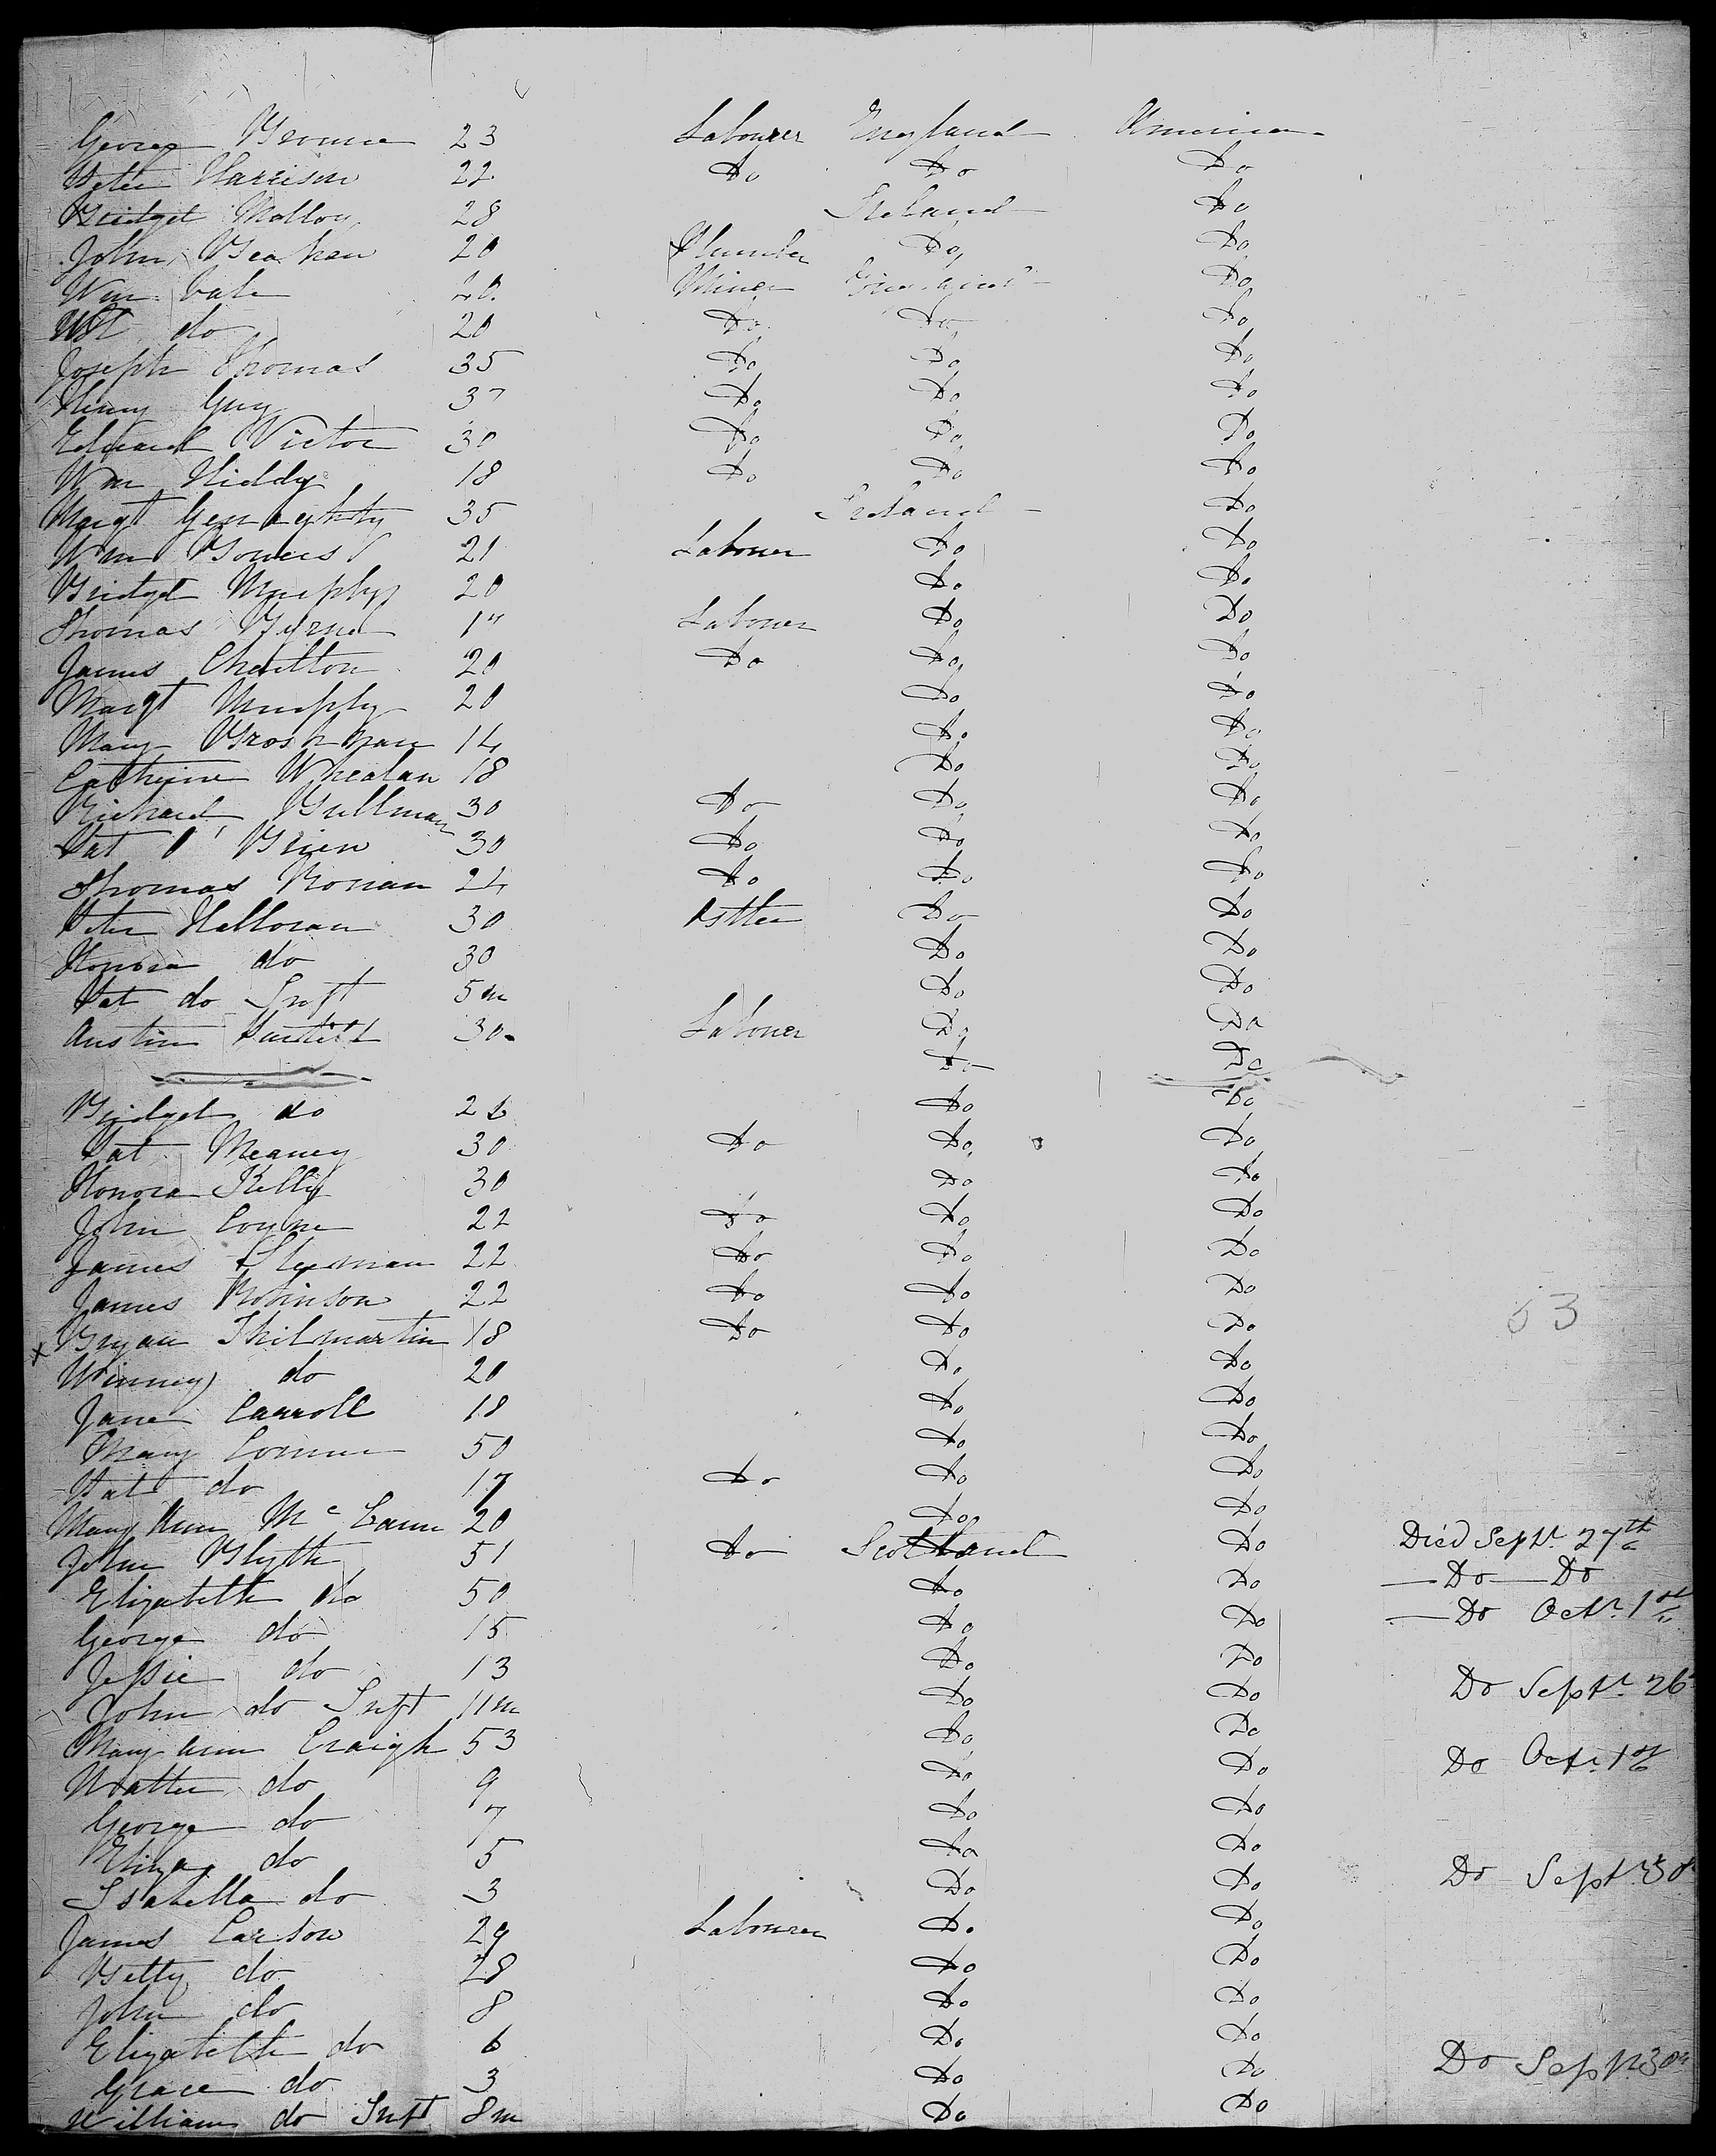 George Browne 23 Labourer England America
Peter Harrison 22 Do Do Do
Bridget Molloy 28 Ireland Do
John Geahan 20 Plumber Do Do
Wm Miner England Do
do 20 Do Do Do
Joseph Thomas 35 Do Do Do
Henry Guy 37 Do Do Do
Edward Victor 30 Do Do Do
Wm Hiddy 18 Do Do Do
Margt Geraghty 35 Ireland Do
Wm Bowers 21 Labourer Do Do
Bridget Murphy 20 Do Do
Thomas Byrne 17 Labourer Do Do
James Charlton 20 Do Do Do
Margt Murphy 20 Do Do
Mary 14 Do Do
Catherine Whealan 18 Do Do
Richard Bullman 30 Do Do Do
Pat O'Brien 30 Do Do Do
Thomas Ronan 24 Do Do Do
Peter Halloran 30 Ostler Do Do
Honora do 30 Do Do
Pat do Inft 5m Do Do
Austin 30 Labourer Do Do
Do Do
Bridget do Do Do
Pat Meaney 30 Do Do Do
Honora Kelly 30 Do Do
John Coyne 22 Do Do Do
James Sleeman 22 Do Do Do
James Robinson 22 Do Do Do
53
x Bryan Kilmartin 18 Do Do Do
Winney do 20 Do Do
Jane Carroll 18 Do Do
Mary 50 Do Do
Pat do 17 Do Do Do
Mary Ann McCann 20 Do Do
John Blyth 51 Do Scotland Do Died Septr 27th
Elizabeth do 50 Do Do — Do — Do
George do 15 Do Do — Do Octr 1st
Jessie do 13 Do Do
John do Inft 11m Do Do Do Septr 26
Mary Ann Craigh 53 Do Do
Walter do 9 Do Do Do Octr 1st
George do 7 Do Do
Eliza do 5 Do Do
Isabella do 3 Do Do Do Septr 30
James Carson 29 Labourer Do Do
Betty do 28 Do Do
John do 8 Do Do
Elizabeth do 6 Do Do
Grace do 3 Do Do Do Septr 30
William do Inft 8m Do Do